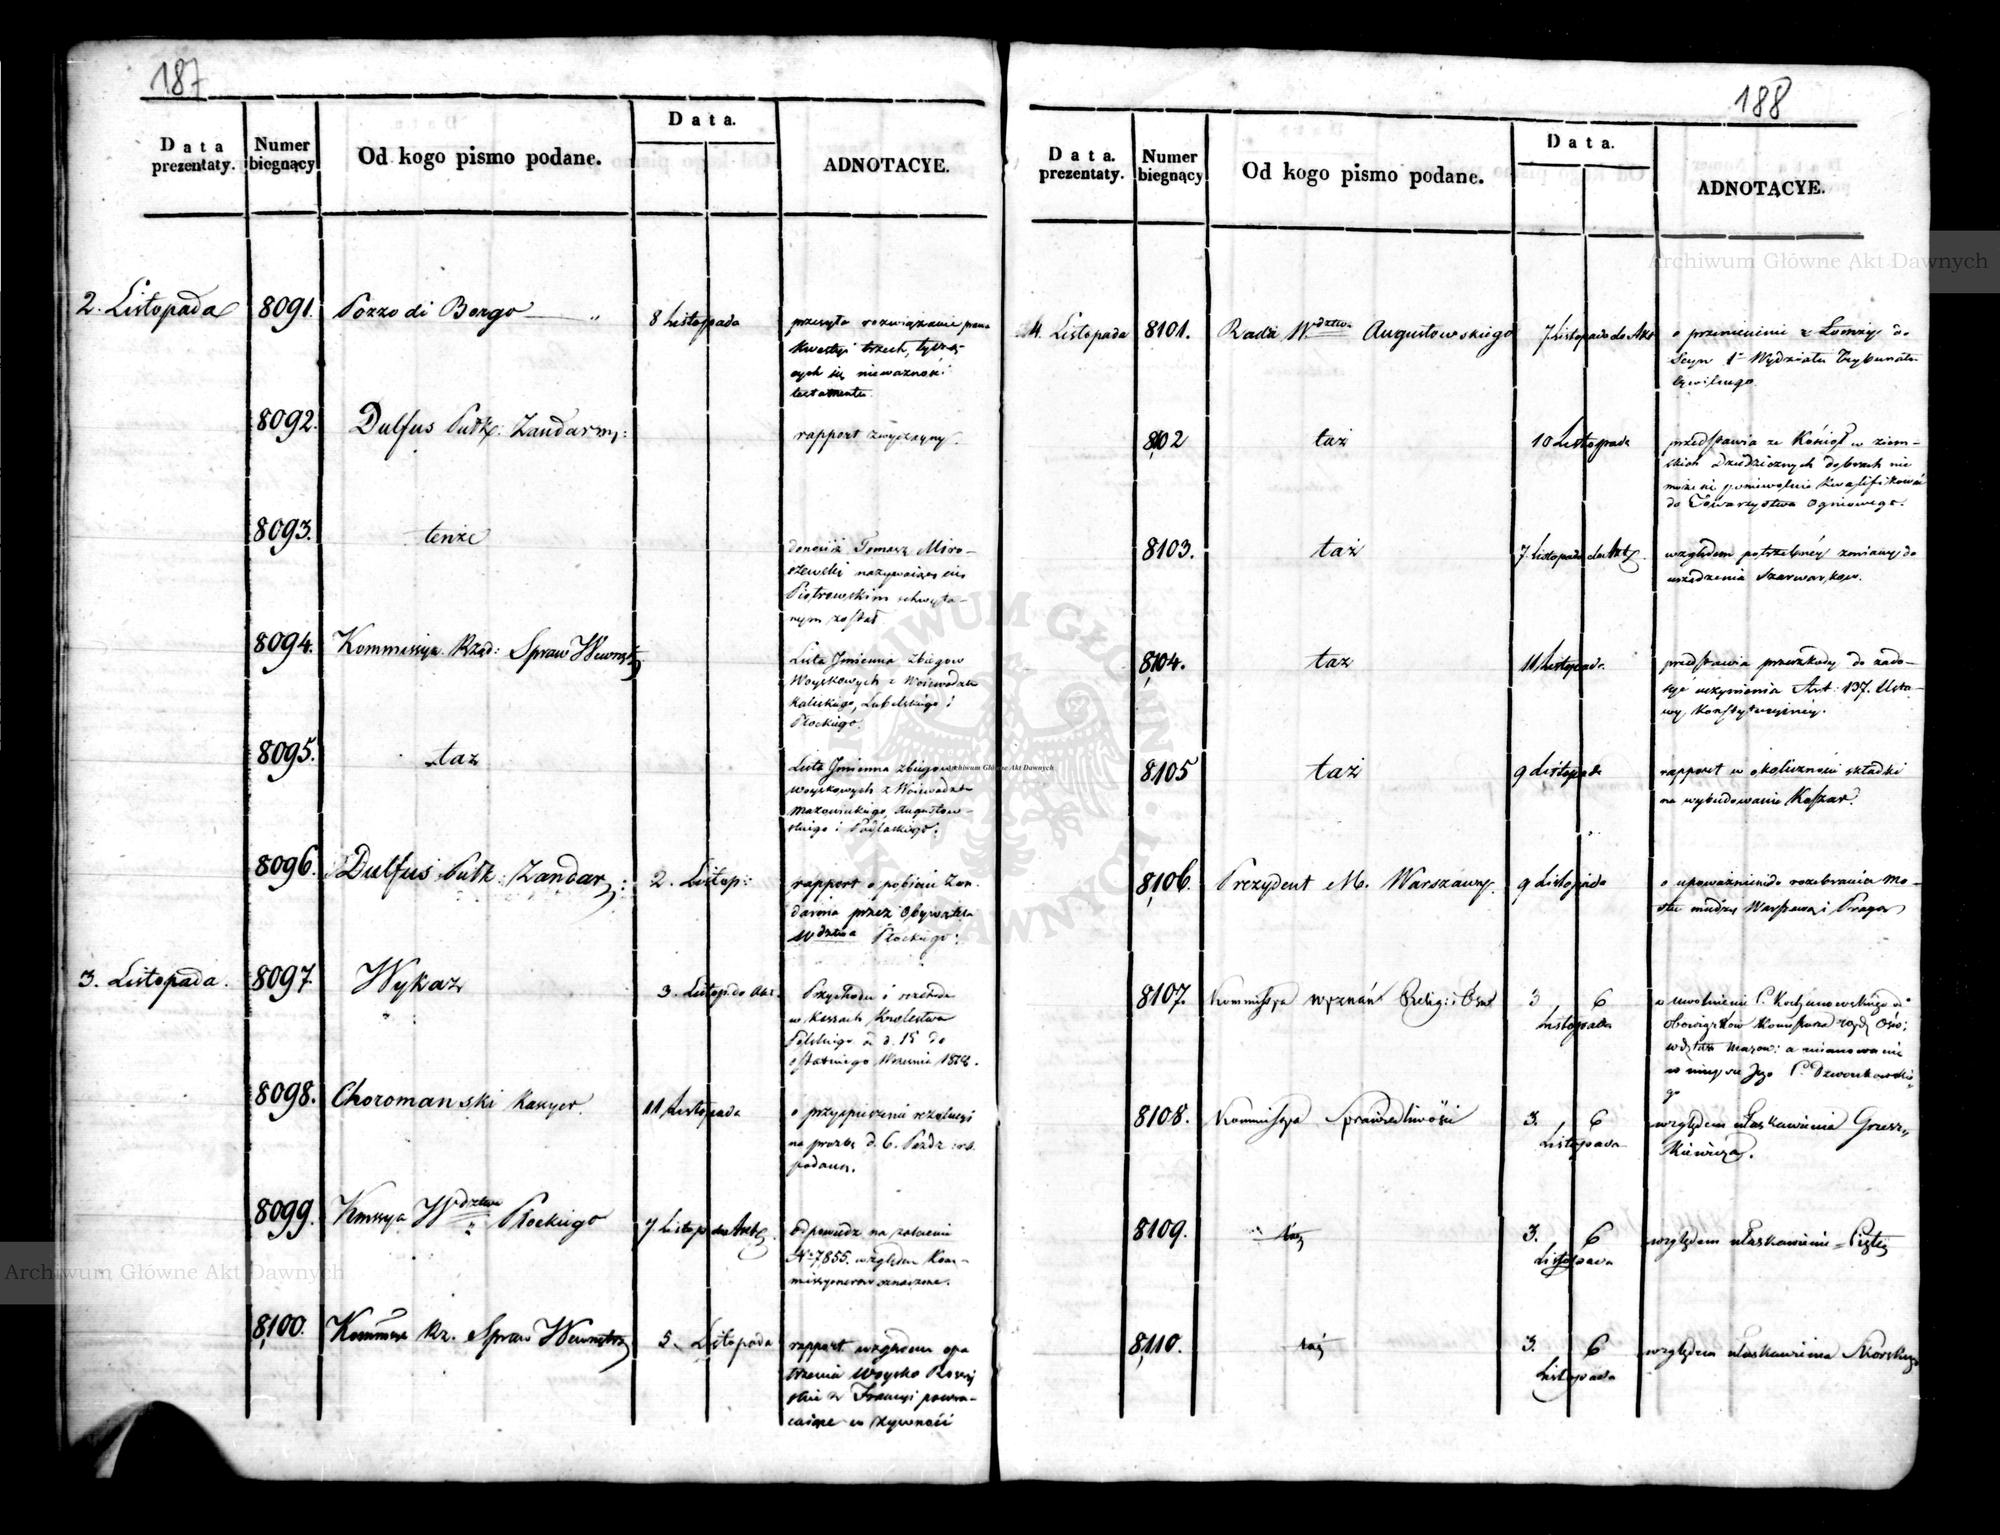 187
Data
prezentaty.
Numer
biegnący
Od kogo pismo podane.
Data.
ADNOTACYE.
2. Listopada 8091. Pozzo di Borgo — " 8 Listopada
przesyła rozwiązanie prawa
kwestyi trzech, tyczą-
cych się nieważnośći
testamentu.
8092. Dulfus Pułk: Żandarm: rapport zwyczayny.
8093. tenże
donosi iż Tomasz Miro-
szewski nazywaiący się
Piotrowskim schwyta-
nym został
8094. Kommissya Rząd: Spraw Wewnętrz
Lista Jmienna Zbiegow
Woyskowych z Woiewodztw
Kaliskiego, Lubelskiego i
Płockiego.
8095. taż
Lista Jmienna Zbiegow
woyskowych z Woiewodztw
Mazowieckiego, Augustow-
skiego i Podlaskiego.
8096. Dulfus Pułk: Żandar: 2. Listop:
rapport o pobiciu Żan-
darma przez Obywatela
Wdztwa Płockiego.
3. Listopada. 8097. Wykaz 3. Listop. do Akt.
Przychodu i rozchodu
w kassach Krolestwa
Polskiego od d. 15 do
ostatniego Wrzesnia 1818.
8098. Choromanski Kassyer. 11 Listopada
o przyspieszenie rezolucyi
na prozbę d. 6. Pazdz: rb.
podaną.
8099. Kmssya Wdztwa Płockiego 7. Listop. do Akt
odpowiedz na zalecenie
No 7855. względem Kom-
missyonerow oznaczone.
8100. Kommssya Rz. Spraw Wewnętrz 5. Listopada
rapport względem opa
trzenia Woysko Rossyi
skie z Francyi powra-
caiące w żywność
188
Data.
prezentaty.
Numer
biegnący
Od kogo pismo podane.
Data.
ADNOTACYE.
4. Listopada 8101. Rada Wdztwa Augustowskiego 7. Listopada do Akt
o przeniesienie z Łomży do
Seyn 1o Wydziału Trybunału
Cywilnego.
8102 taż 10 Listopada
przedstawia ze Kościoł w ziem-
skich Dziedzicznych dobrach nie
może się poniewolnie kwalifikować
do Towarzystwa Ogniowego.
8103. taż 7. Listopada do Akt.
względem potrzebney zmiany do
urządzenia Szarwarkow.
8104. taż 11 Listopada
przedstawia przeszkody do zado-
syć uczynienia Art: 137. Usta-
wy Konstytucyiney.
8105 taż 9 Listopada
rapport w okoliczności składki
na wybudowanie Koszar.
8106. Prezydent M. Warszawy. 9 Listopada
o upoważnienie do rozebrania Mo-
stu między Warszawą i Pragą
8107. Kommissya wyznań Relig: i Ośw 3 6
Listopada
o uwolnienie P. Kochanowskiego od
obowiązków
wdztwa Mazow: a mianowanie
w mieysce Jego P. Dzwonkowskie-
go
8108. Kommissya Sprawiedliwości 3. 6
Listopada
względem ułaskawienia Grusz-
kiewicza.
8109. taż 3. 6
Listopada
względem ułaskawienia
8110. taż 3. 6
Listopada
względem ułaskawienia Morskiego
Archiwum Główne Akt Dawnych
Archiwum Główne Akt Dawnych
Archiwum Główne Akt Dawnych
ARCHIWUM GŁÓWNE AKT DAWNYCH